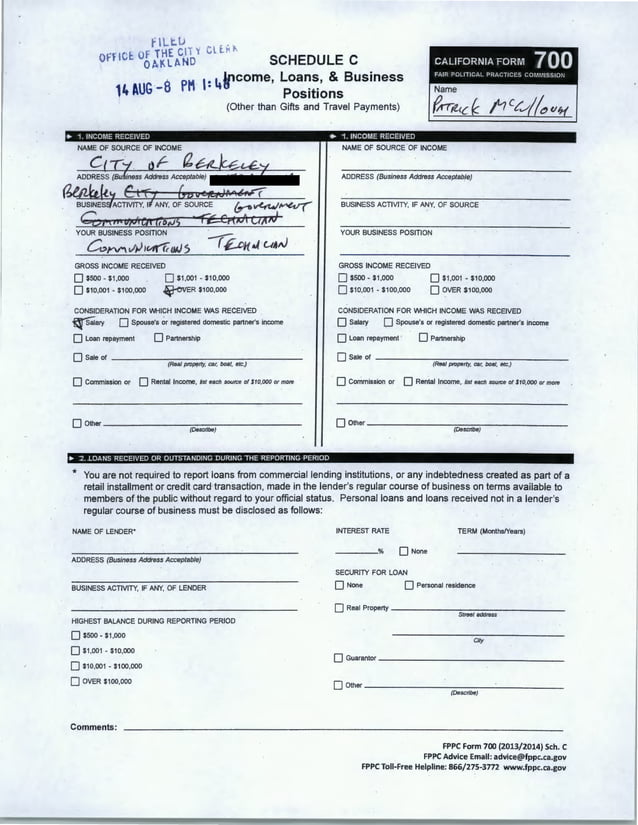 FILED
OFFICE OF THE CITY CLERK
OAKLAND
14 AUG -8 PM 1:48
SCHEDULE C
Income, Loans, & Business
Positions
(Other than Gifts and Travel Payments)
CALIFORNIA FORM 700
FAIR POLITICAL PRACTICES COMMISSION
Name
PATRICK McCullough
► 1. INCOME RECEIVED
NAME OF SOURCE OF INCOME
CITY OF BERKELEY
ADDRESS (Business Address Acceptable)
Berkeley CITY GOVERNMENT
BUSINESS ACTIVITY, IF ANY, OF SOURCE GOVERNMENT
COMMUNICATIONS TECHNICIAN
YOUR BUSINESS POSITION
COMMUNICATIONS TECHNICIAN
GROSS INCOME RECEIVED
$500 - $1,000 $1,001 - $10,000
$10,001 - $100,000 OVER $100,000
CONSIDERATION FOR WHICH INCOME WAS RECEIVED
Salary Spouse's or registered domestic partner's income
Loan repayment Partnership
Sale of
(Real property, car, boat, etc.)
Commission or Rental Income, list each source of $10,000 or more
Other
(Describe)
► 1. INCOME RECEIVED
NAME OF SOURCE OF INCOME
ADDRESS (Business Address Acceptable)
BUSINESS ACTIVITY, IF ANY, OF SOURCE
YOUR BUSINESS POSITION
GROSS INCOME RECEIVED
$500 - $1,000 $1,001 - $10,000
$10,001 - $100,000 OVER $100,000
CONSIDERATION FOR WHICH INCOME WAS RECEIVED
Salary Spouse's or registered domestic partner's income
Loan repayment Partnership
Sale of
(Real property, car, boat, etc.)
Commission or Rental Income, list each source of $10,000 or more
Other
(Describe)
► 2. LOANS RECEIVED OR OUTSTANDING DURING THE REPORTING PERIOD
* You are not required to report loans from commercial lending institutions, or any indebtedness created as part of a
retail installment or credit card transaction, made in the lender's regular course of business on terms available to
members of the public without regard to your official status. Personal loans and loans received not in a lender's
regular course of business must be disclosed as follows:
NAME OF LENDER*
ADDRESS (Business Address Acceptable)
BUSINESS ACTIVITY, IF ANY, OF LENDER
HIGHEST BALANCE DURING REPORTING PERIOD
$500 - $1,000
$1,001 - $10,000
$10,001 - $100,000
OVER $100,000
INTEREST RATE TERM (Months/Years)
% None
SECURITY FOR LOAN
None Personal residence
Real Property
Street address
City
Guarantor
Other
(Describe)
Comments:
FPPC Form 700 (2013/2014) Sch. C
FPPC Advice Email: advice@fppc.ca.gov
FPPC Toll-Free Helpline: 866/275-3772 www.fppc.ca.gov